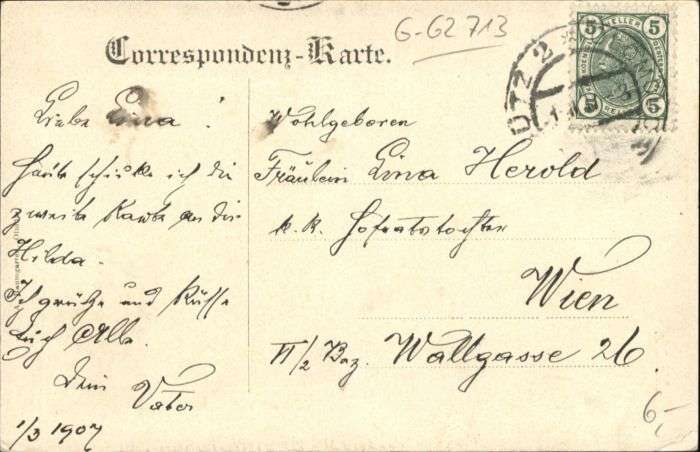 G-G2 713
Correspondenz-Karte.
5 HELLER 5
5 5
Liebe Lina!
Heute schicke ich die
zweite Karte an die
Hilda.
Ich grüße und Küsse
Euch Alle.
Dein Vater
1/3 1907
Wohlgeboren
Fräulein Lina Herold
k. k. Hofratstochter
Wien
VI/2 Bez. Wallgasse 26.
6,-